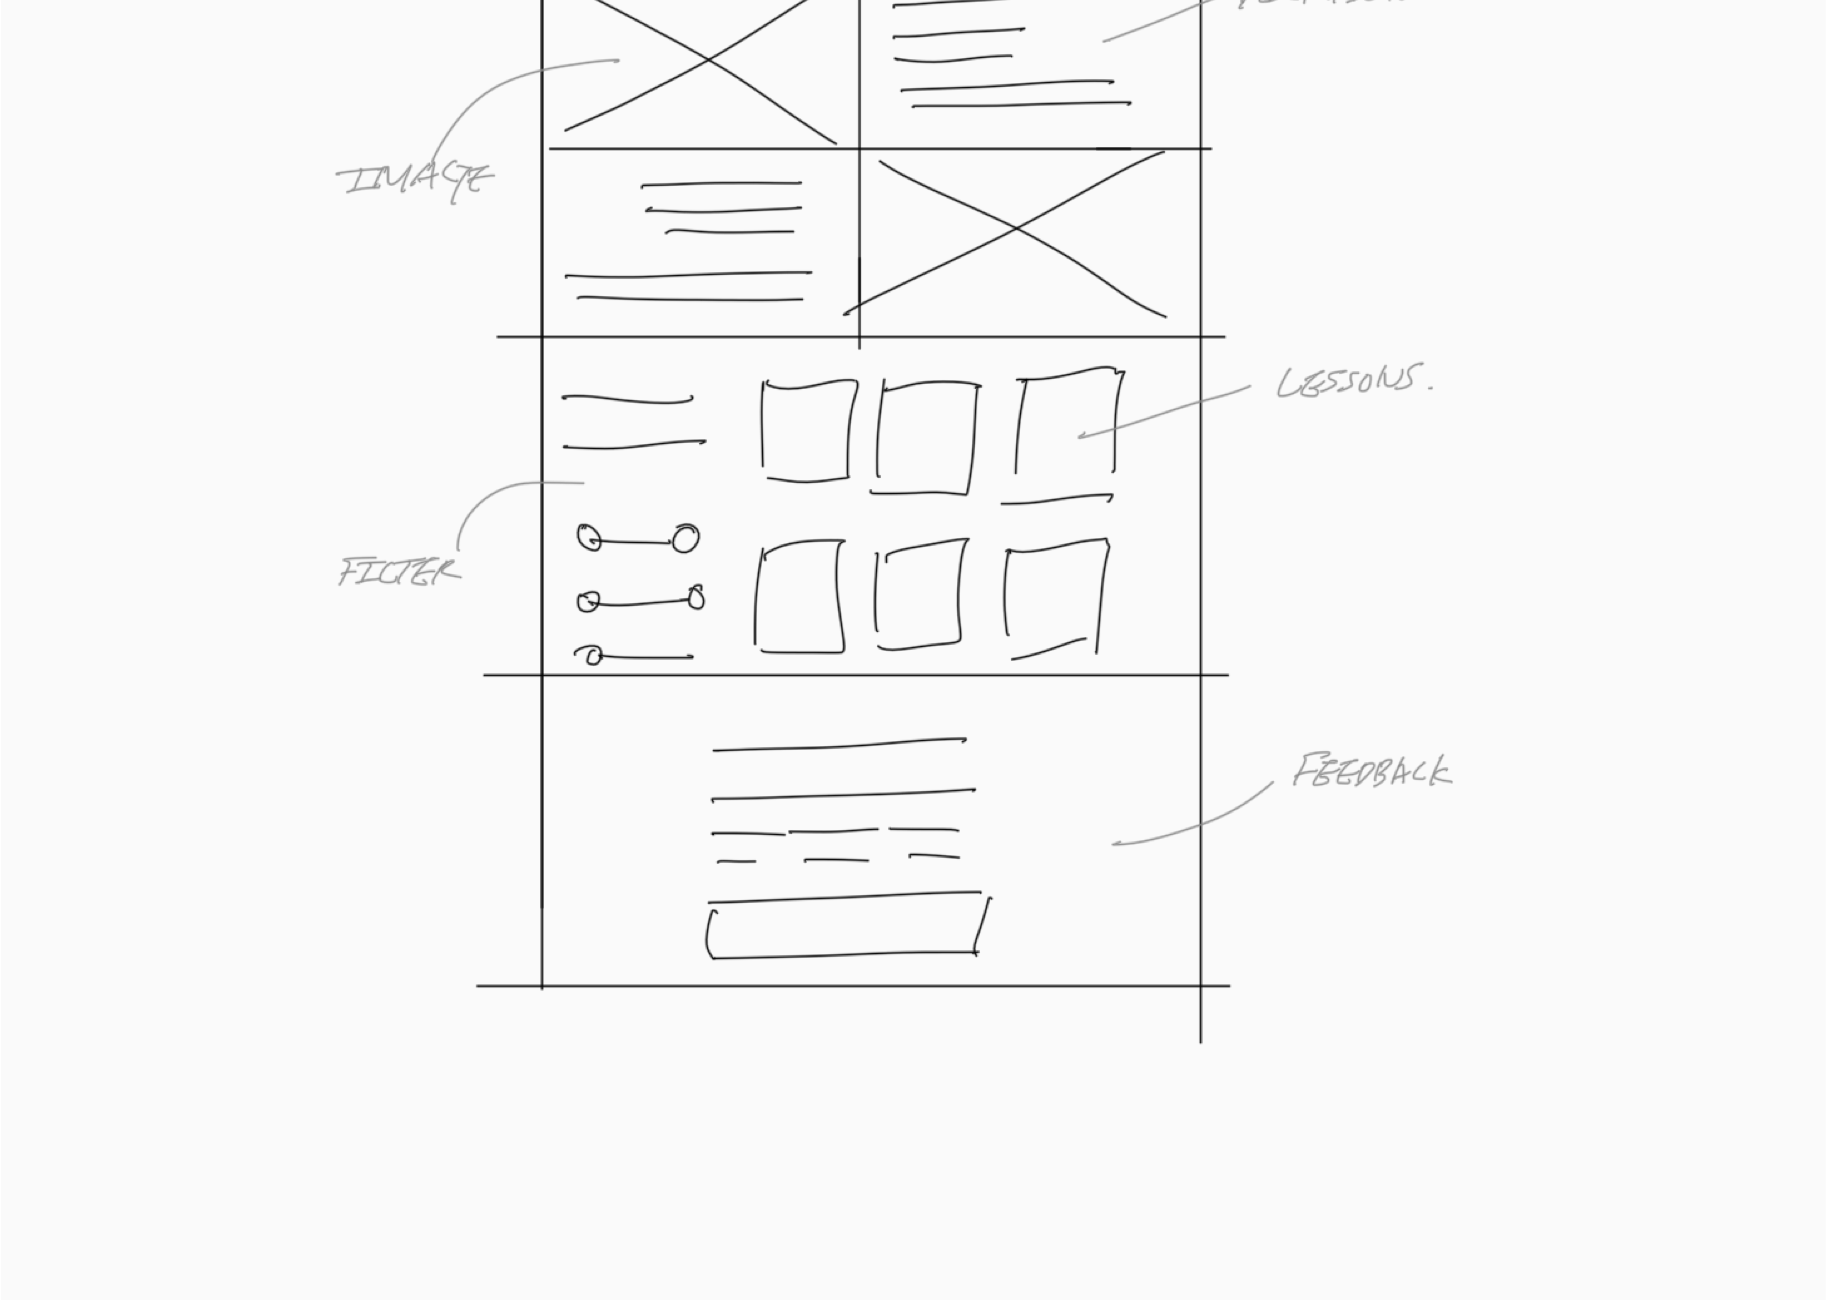 IMAGE
LESSONS.
FILTER
FEEDBACK